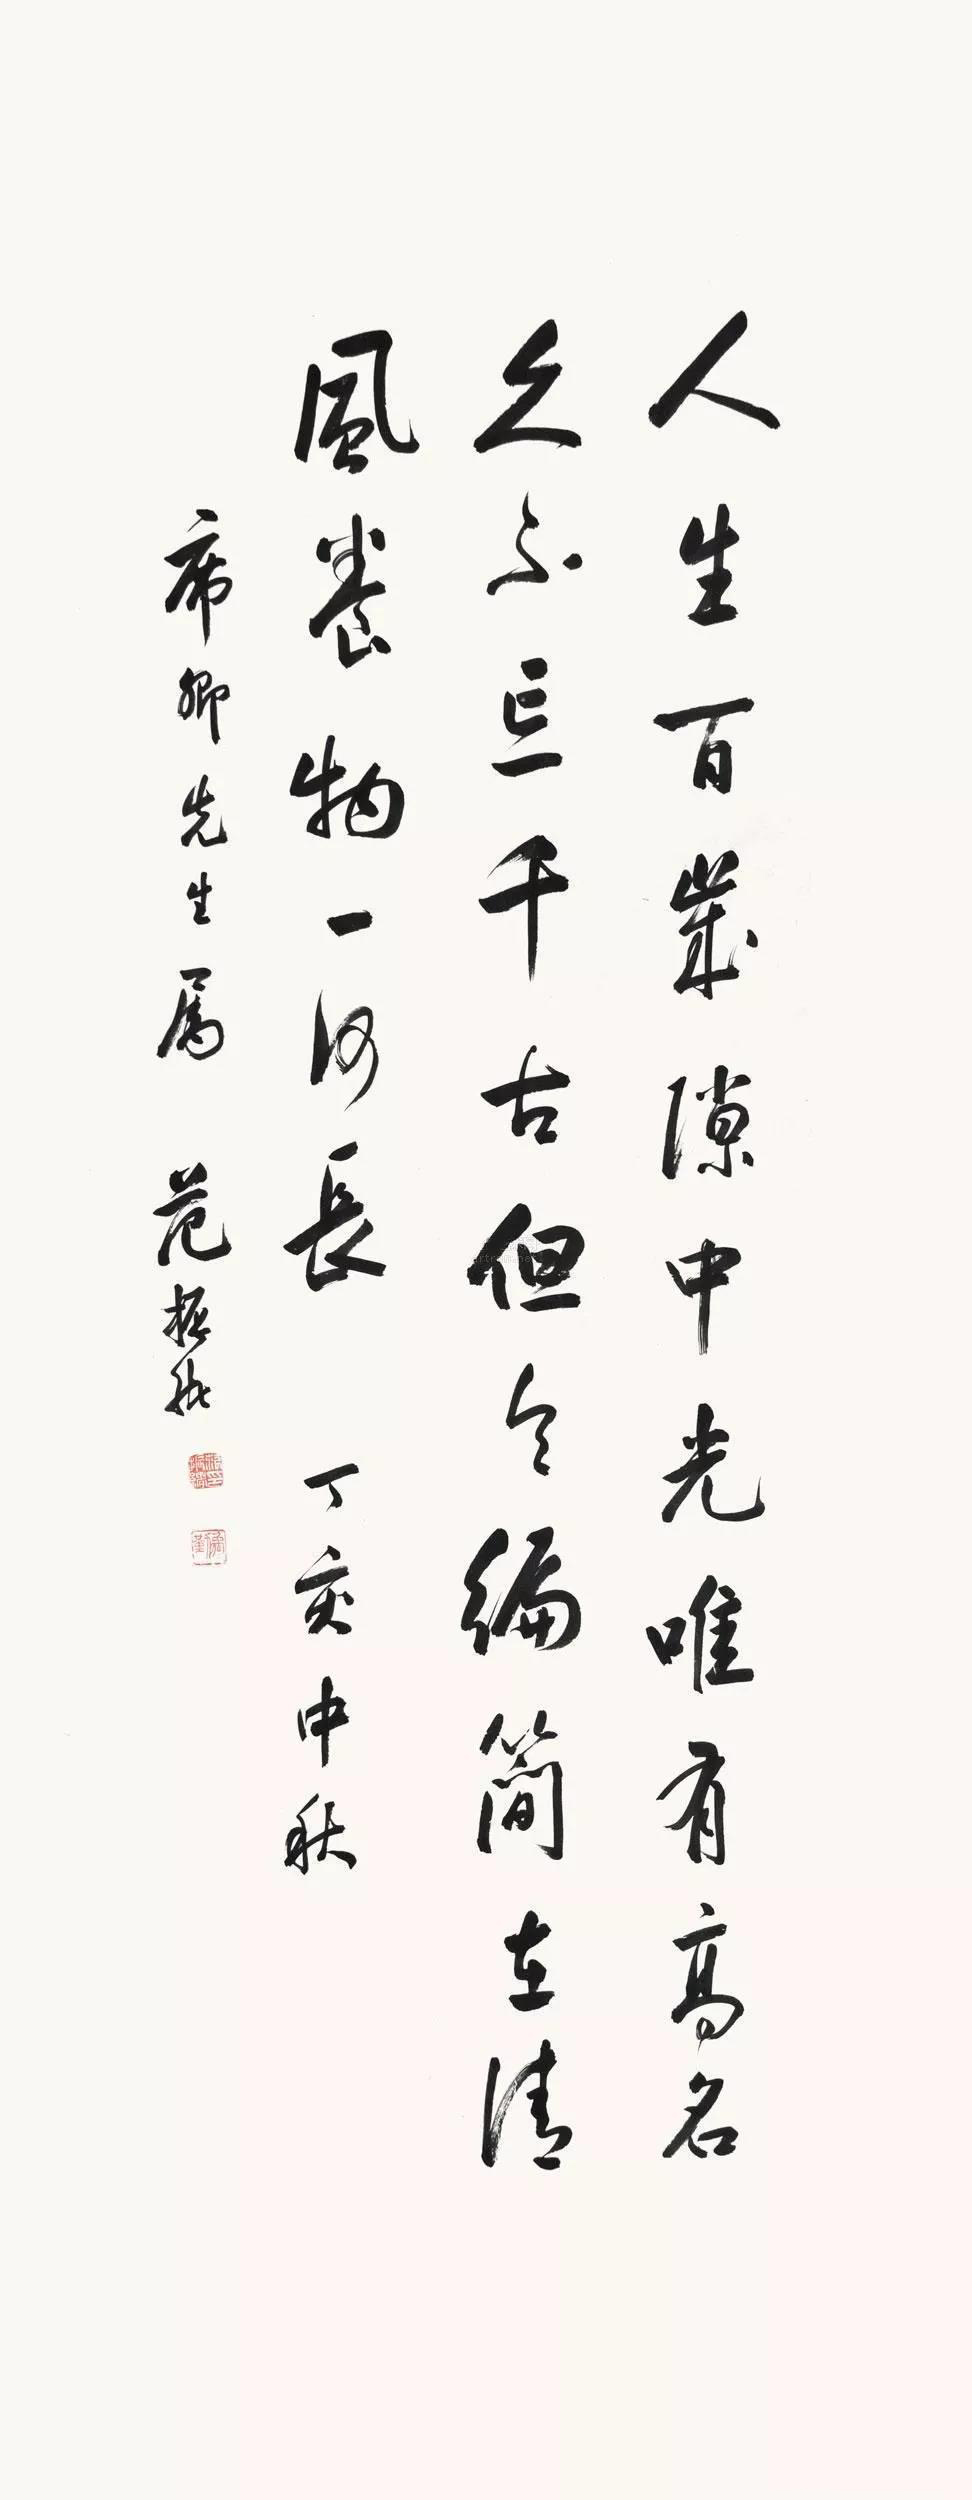 人生百歲隙中光唯有高名
久不亡千古但令編簡在清
風長物一何長 丁亥中秋
席卿先生屬 范振緒